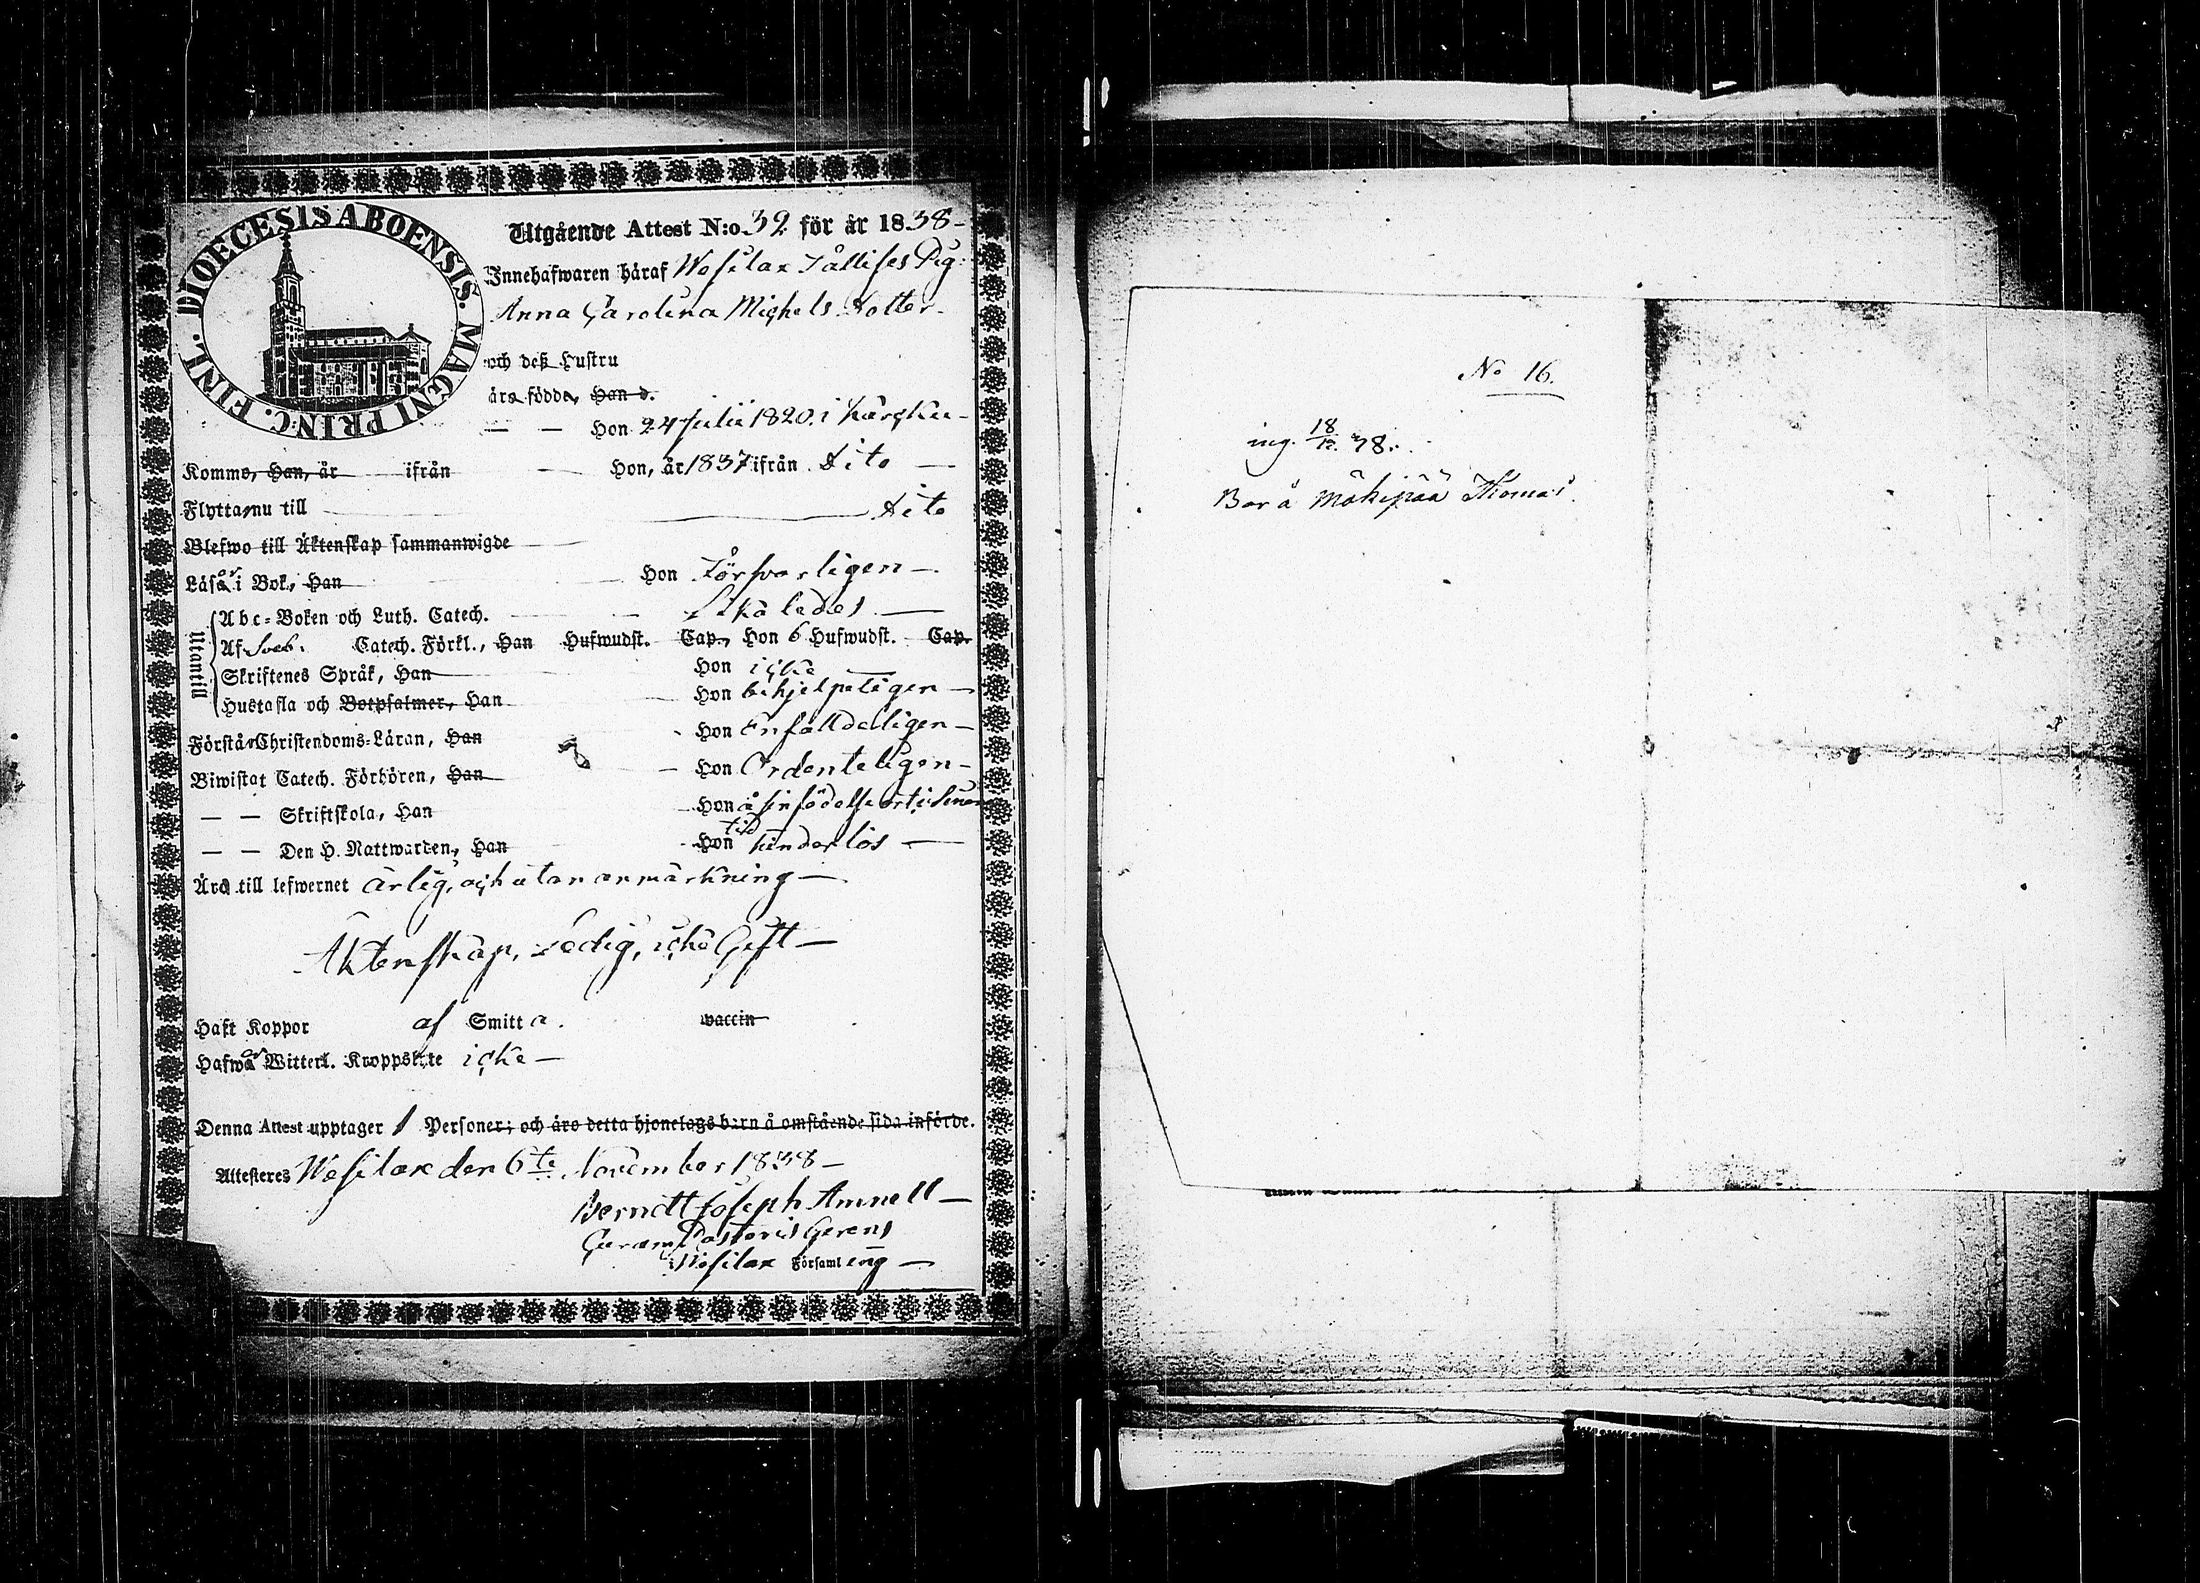 DIOECESIS ABOENSIS. MAGNI PRINC. FINL.
Utgående Attest N:o 32 för år 1838 -
Innehafwaren häraf Wesilax Pig:
Anna Carolina Michels Dotter -
och deß Hustru
äro födde, Han d.
— — Hon 24 Julii 1820 i
Komme, Han, år ifrån — Hon, år 1837 ifrån Dito —
Flytta, nu till — Dito
Blefwo till Äktenskap sammanwigde
Läsa i Bok, Han — Hon Försvarligen —
Utantill
Abc-Boken och Luth. Catech. — Likaledes —
Af Sveb. Catech. Förkl., Han Hufwudst. Cap., Hon 6 Hufwudst. Cap.
Skriftenes Språk, Han Hon icke
Hustafla och Botpsalmer, Han Hon behjelpeligen —
Förstår Christendoms-Läran, Han Hon Enfalldeligen —
Biwistat Catech. Förhören, Han — Hon Ordenteligen —
— — Skriftskola, Han Hon å sin födelse ort i sinom
tid
— — Den H. Nattwarden, Han Hon hinderlös —
Äro till lefwernet ärlig, och utan anmärkning —
Äktenskap, Ledig, icke Gift —
Haft Koppor af Smitta. vaccin
Hafwa Witterl. Kroppslyte icke —
Denna Attest upptager 1 Personer; och äro detta hjonelags barn å omstående sida införde.
Attesteres Wesilax den 6te November 1838 —
Berndtt Joseph Amnell —
Curam Pastoris Gerens
i Wesilax Församling —
No 16.
ing. 18/12. 38.
Bor å Mähipää Thomas.